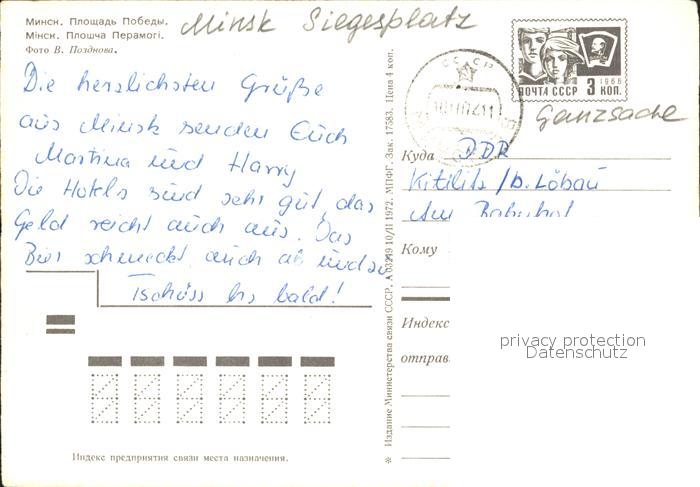 Минск. Площадь Победы.
Мінск. Плошча Перамогі.
Фото В. Позднова.
Minsk Siegesplatz
Die herzlichsten Grüße
aus Minsk senden Euch
Martina und Harry
Die Hotels sind sehr gut, das
Geld reicht auch aus. Das
Bier schmeckt auch ab und zu
Tschüss bis bald!
Индекс предприятия связи места назначения.
* Издание Министерства связи СССР. А 03219 10/II 1972. МПФГ. Зак. 17583. Цена 4 коп.
СССР
1966
ПОЧТА СССР 3 КОП.
Ganzsache
Куда DDR
Kittlitz /b. Löbau
Am Bahnhof
Кому
Индекс
отправ
privacy protection
Datenschutz